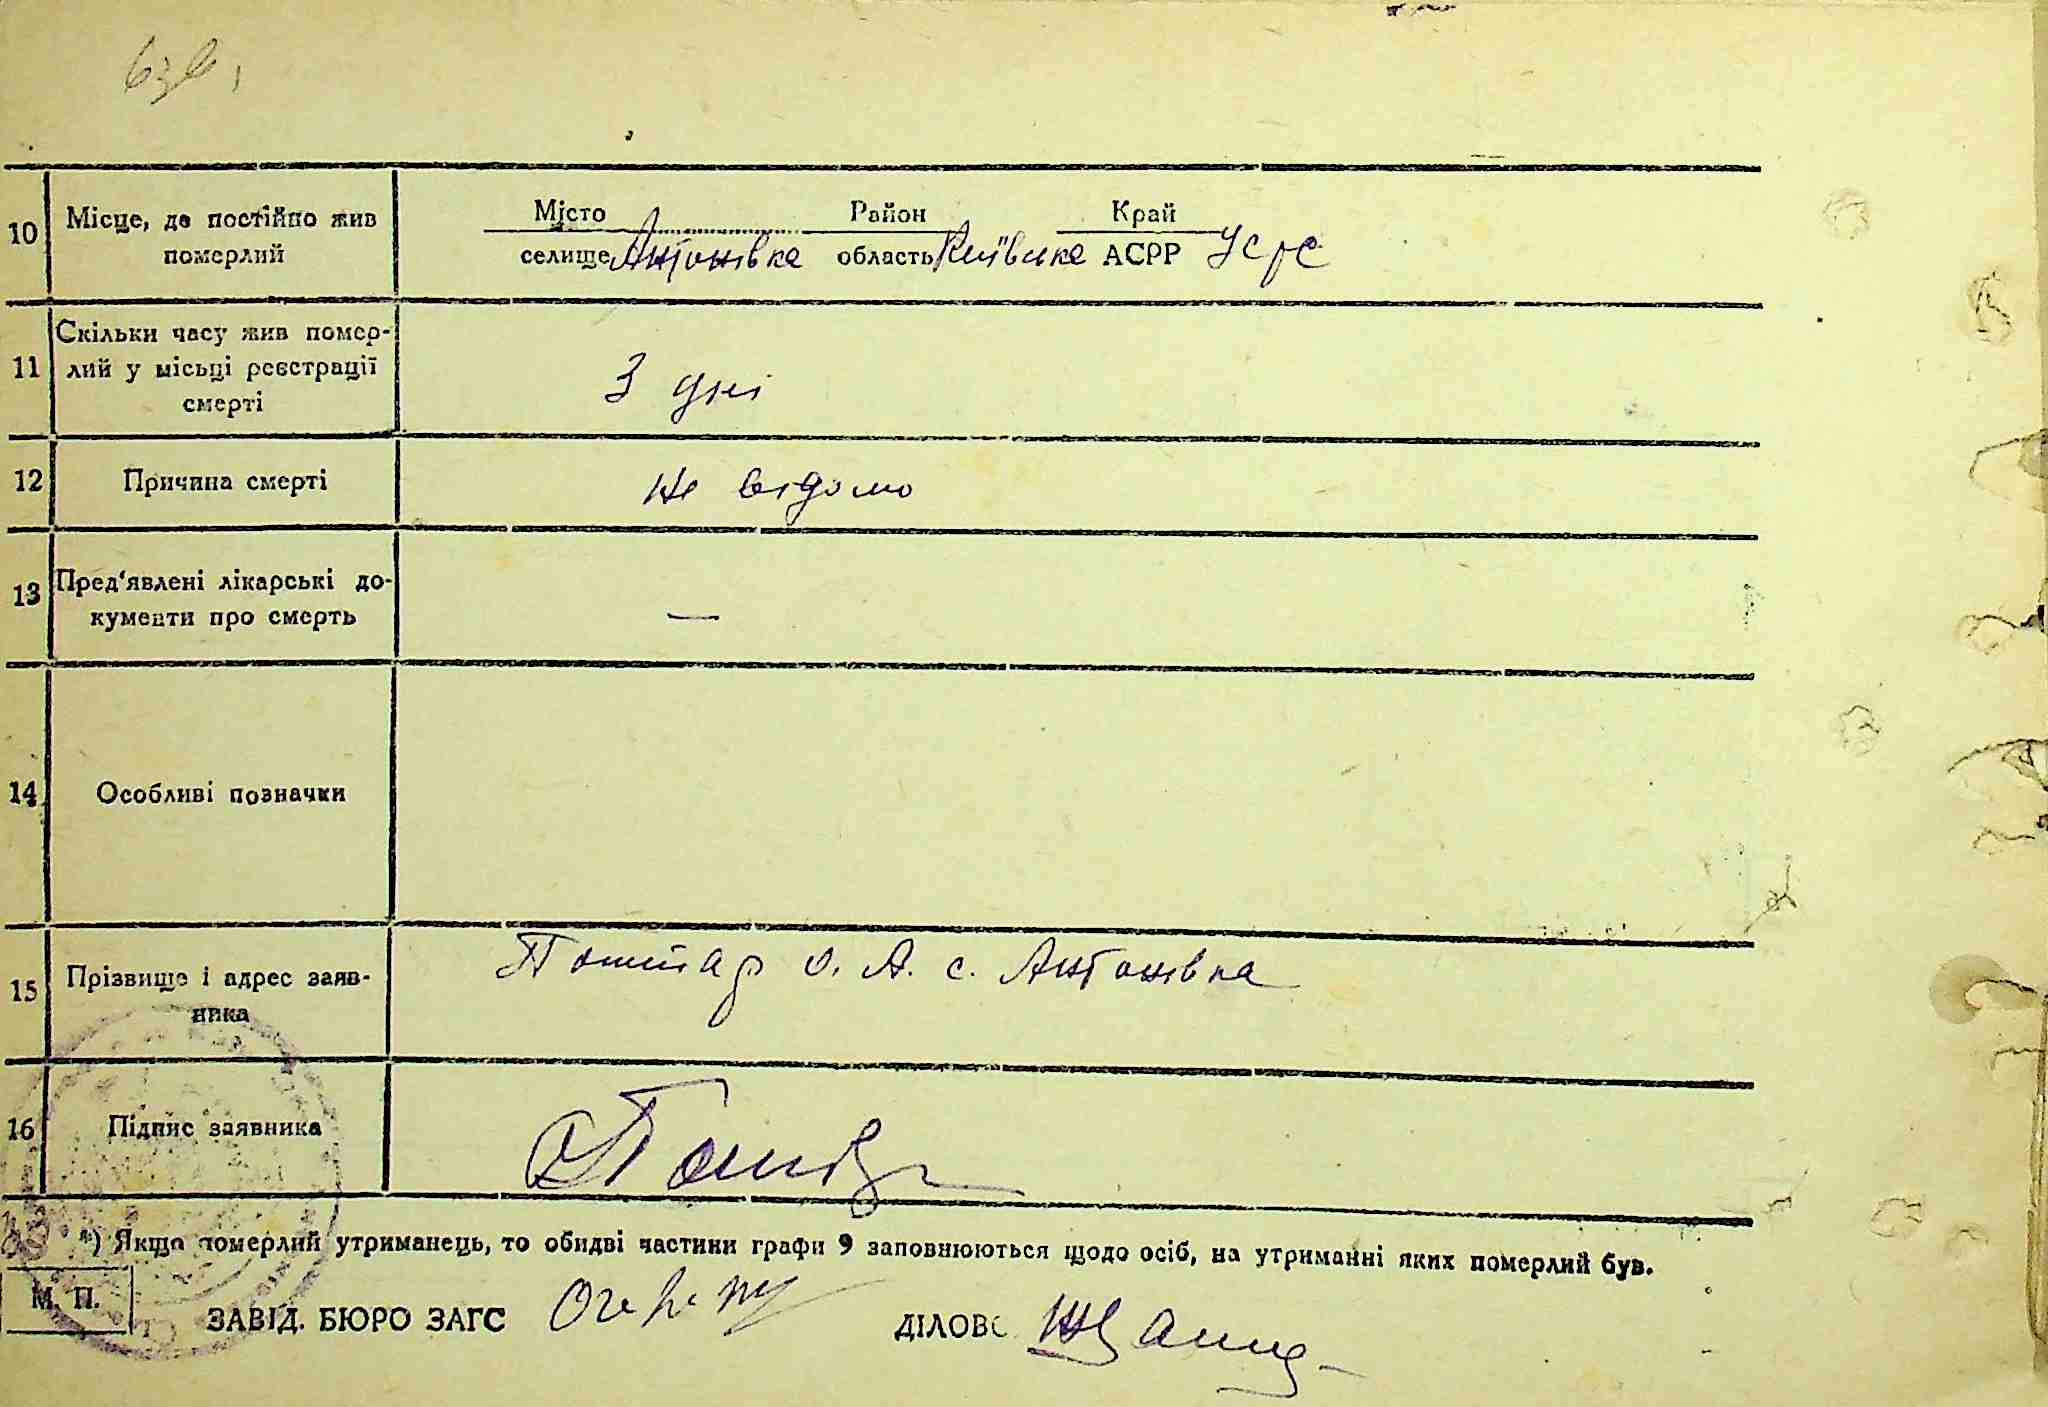 10 Місце, де постійно жив
померлий
Місто Район Край
селище Антонівка область Київська АСРР УСРС
11 Скільки часу жив помер-
лий у місьці реєстрації
смерті
3 дні
12 Причина смерті не відомо
13 Пред'явлені лікарські до-
кументи про смерть —
14 Особливі позначки
15 Прізвище і адрес заяв-
ника
Поштар О. А. с. Антонівка
16 Підпис заявника
*) Якщо померлий утриманець, то обидві частини графи 9 заповнюються щодо осіб, на утриманні яких померлий був.
М. П.
ЗАВІД. БЮРО ЗАГС ДІЛОВС